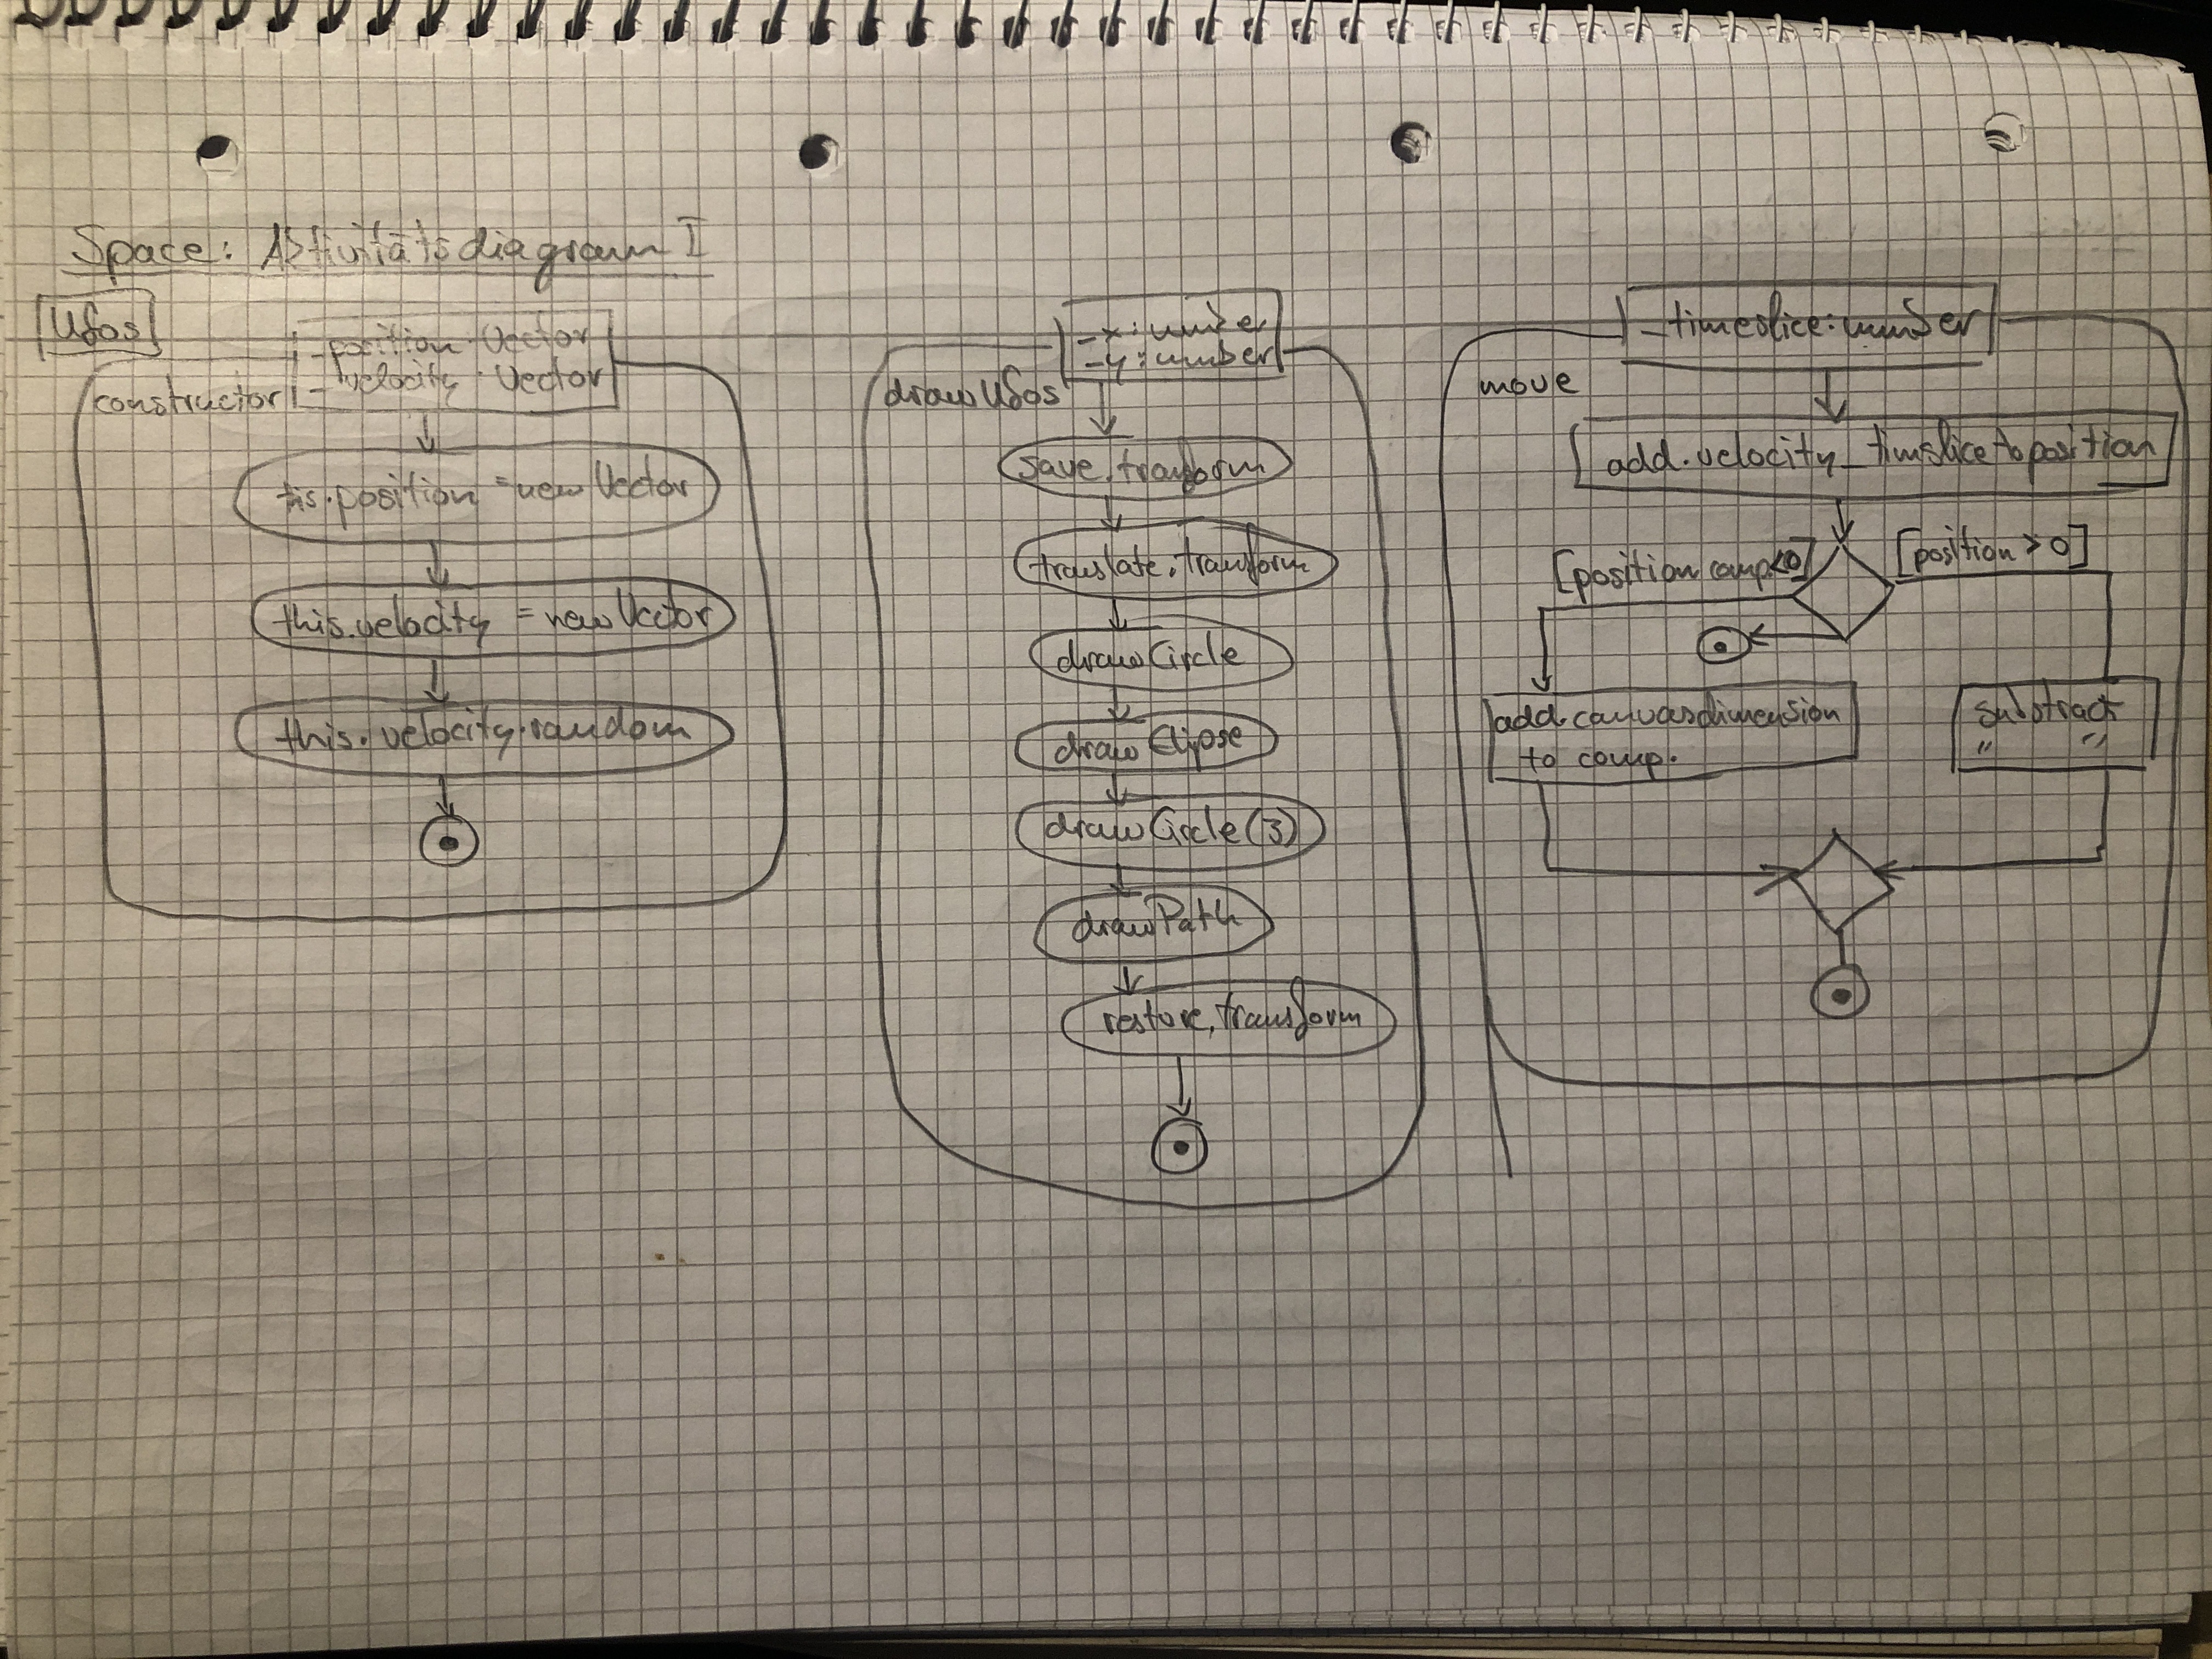 Space: Aktivitätsdiagramm I
Ufos
constructor
_position: Vector
_velocity: Vector
this.position = new Vector
this.velocity = new Vector
this.velocity.random
drawUfos
_x: number
_y: number
save, transform
translate, transform
drawCircle
drawElipse
drawCircle (3)
drawPath
restore, transform
move
_timeslice: number
add.velocity _timslice to position
[position comp.<0]
[position > 0]
add.canvasdimension
to comp.
substract
" "